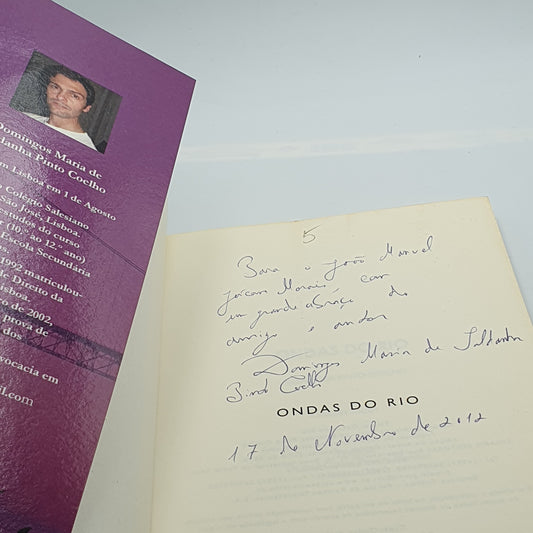 Domingos Maria de
danha Pinto Coelho
m Lisboa em 1 de Agosto
Colégio Salesiano
São José, Lisboa.
studos do curso
(10.º ao 12.º ano)
Escola Secundária
1992 matriculou-
de Direito da
isboa.
o de 2002
prova de
dos
vocacia em
il.com
5
Para o João Manuel
Morais, com
um grande abraço do
amigo e autor
Domingos Maria de Saldanha
Pinto Coelho
ONDAS DO RIO
17 de Novembro de 2012